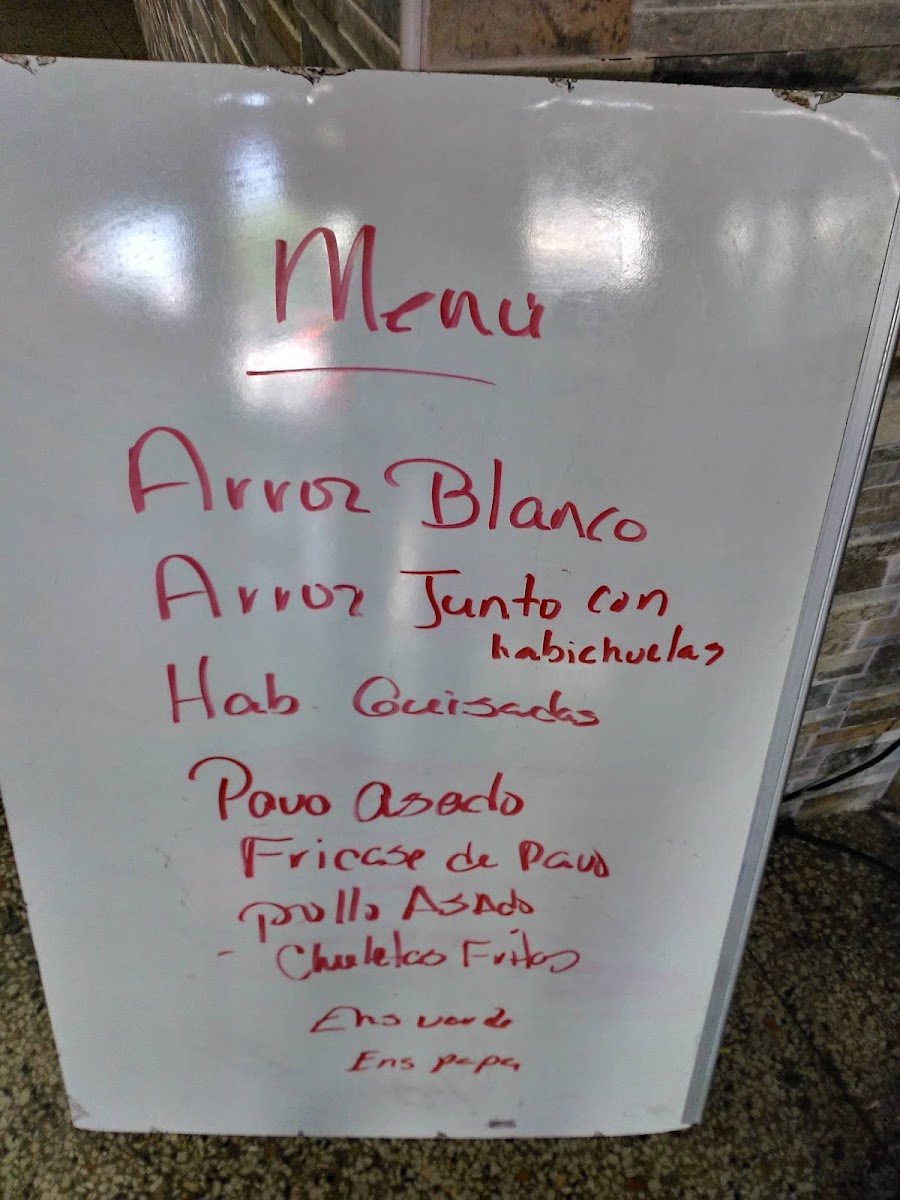 Menú
Arroz Blanco
Arroz Junto con
habichuelas
Hab. Guisadas
Pavo Asado
Fricase de Pavo
pollo Asado
- Chuletas Fritas
Ens verde
Ens papa